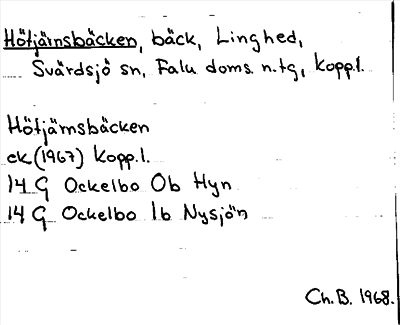 Hötjärnsbäcken, bäck, Linghed,
Svärdsjö sn, Falu doms. n. tg, Kopp. l.
Hötjärnsbäcken
ek (1967) Kopp. l.
14 G Ockelbo 0b Hyn
14 G Ockelbo 1b Nysjön
Ch. B. 1968.